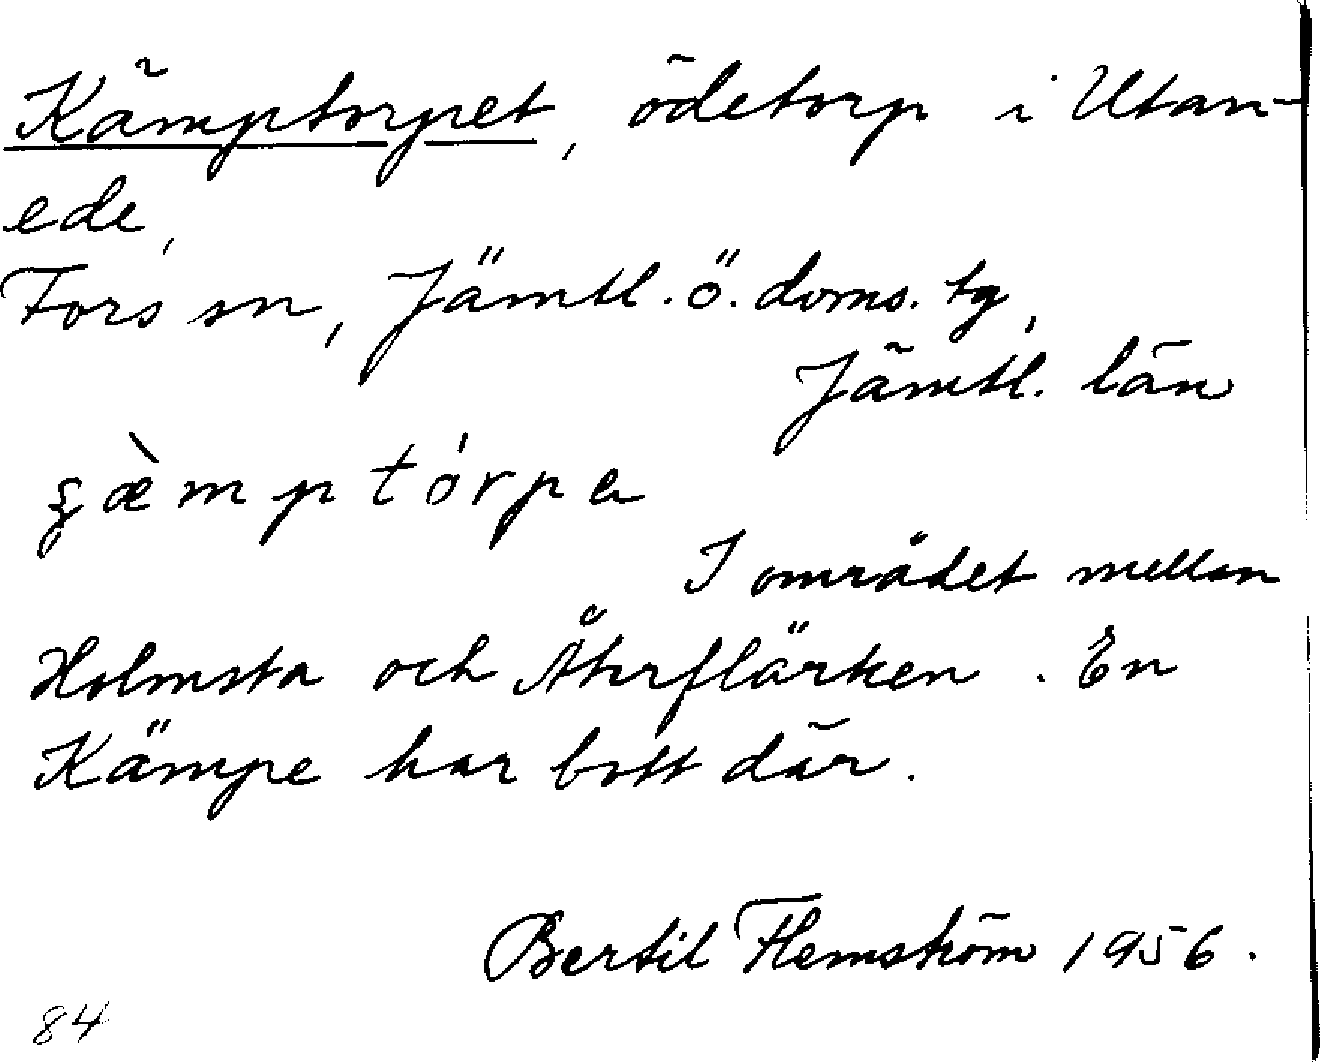 Kämptorpet, ödetorp i Utan-
ede,
Fors sn, Jämtl. ö. doms. tg,
Jämtl. län
I området mellan
Holmsta och Återflärken. En
Kämpe har bott där.
Bertil Flemström 1956.
84